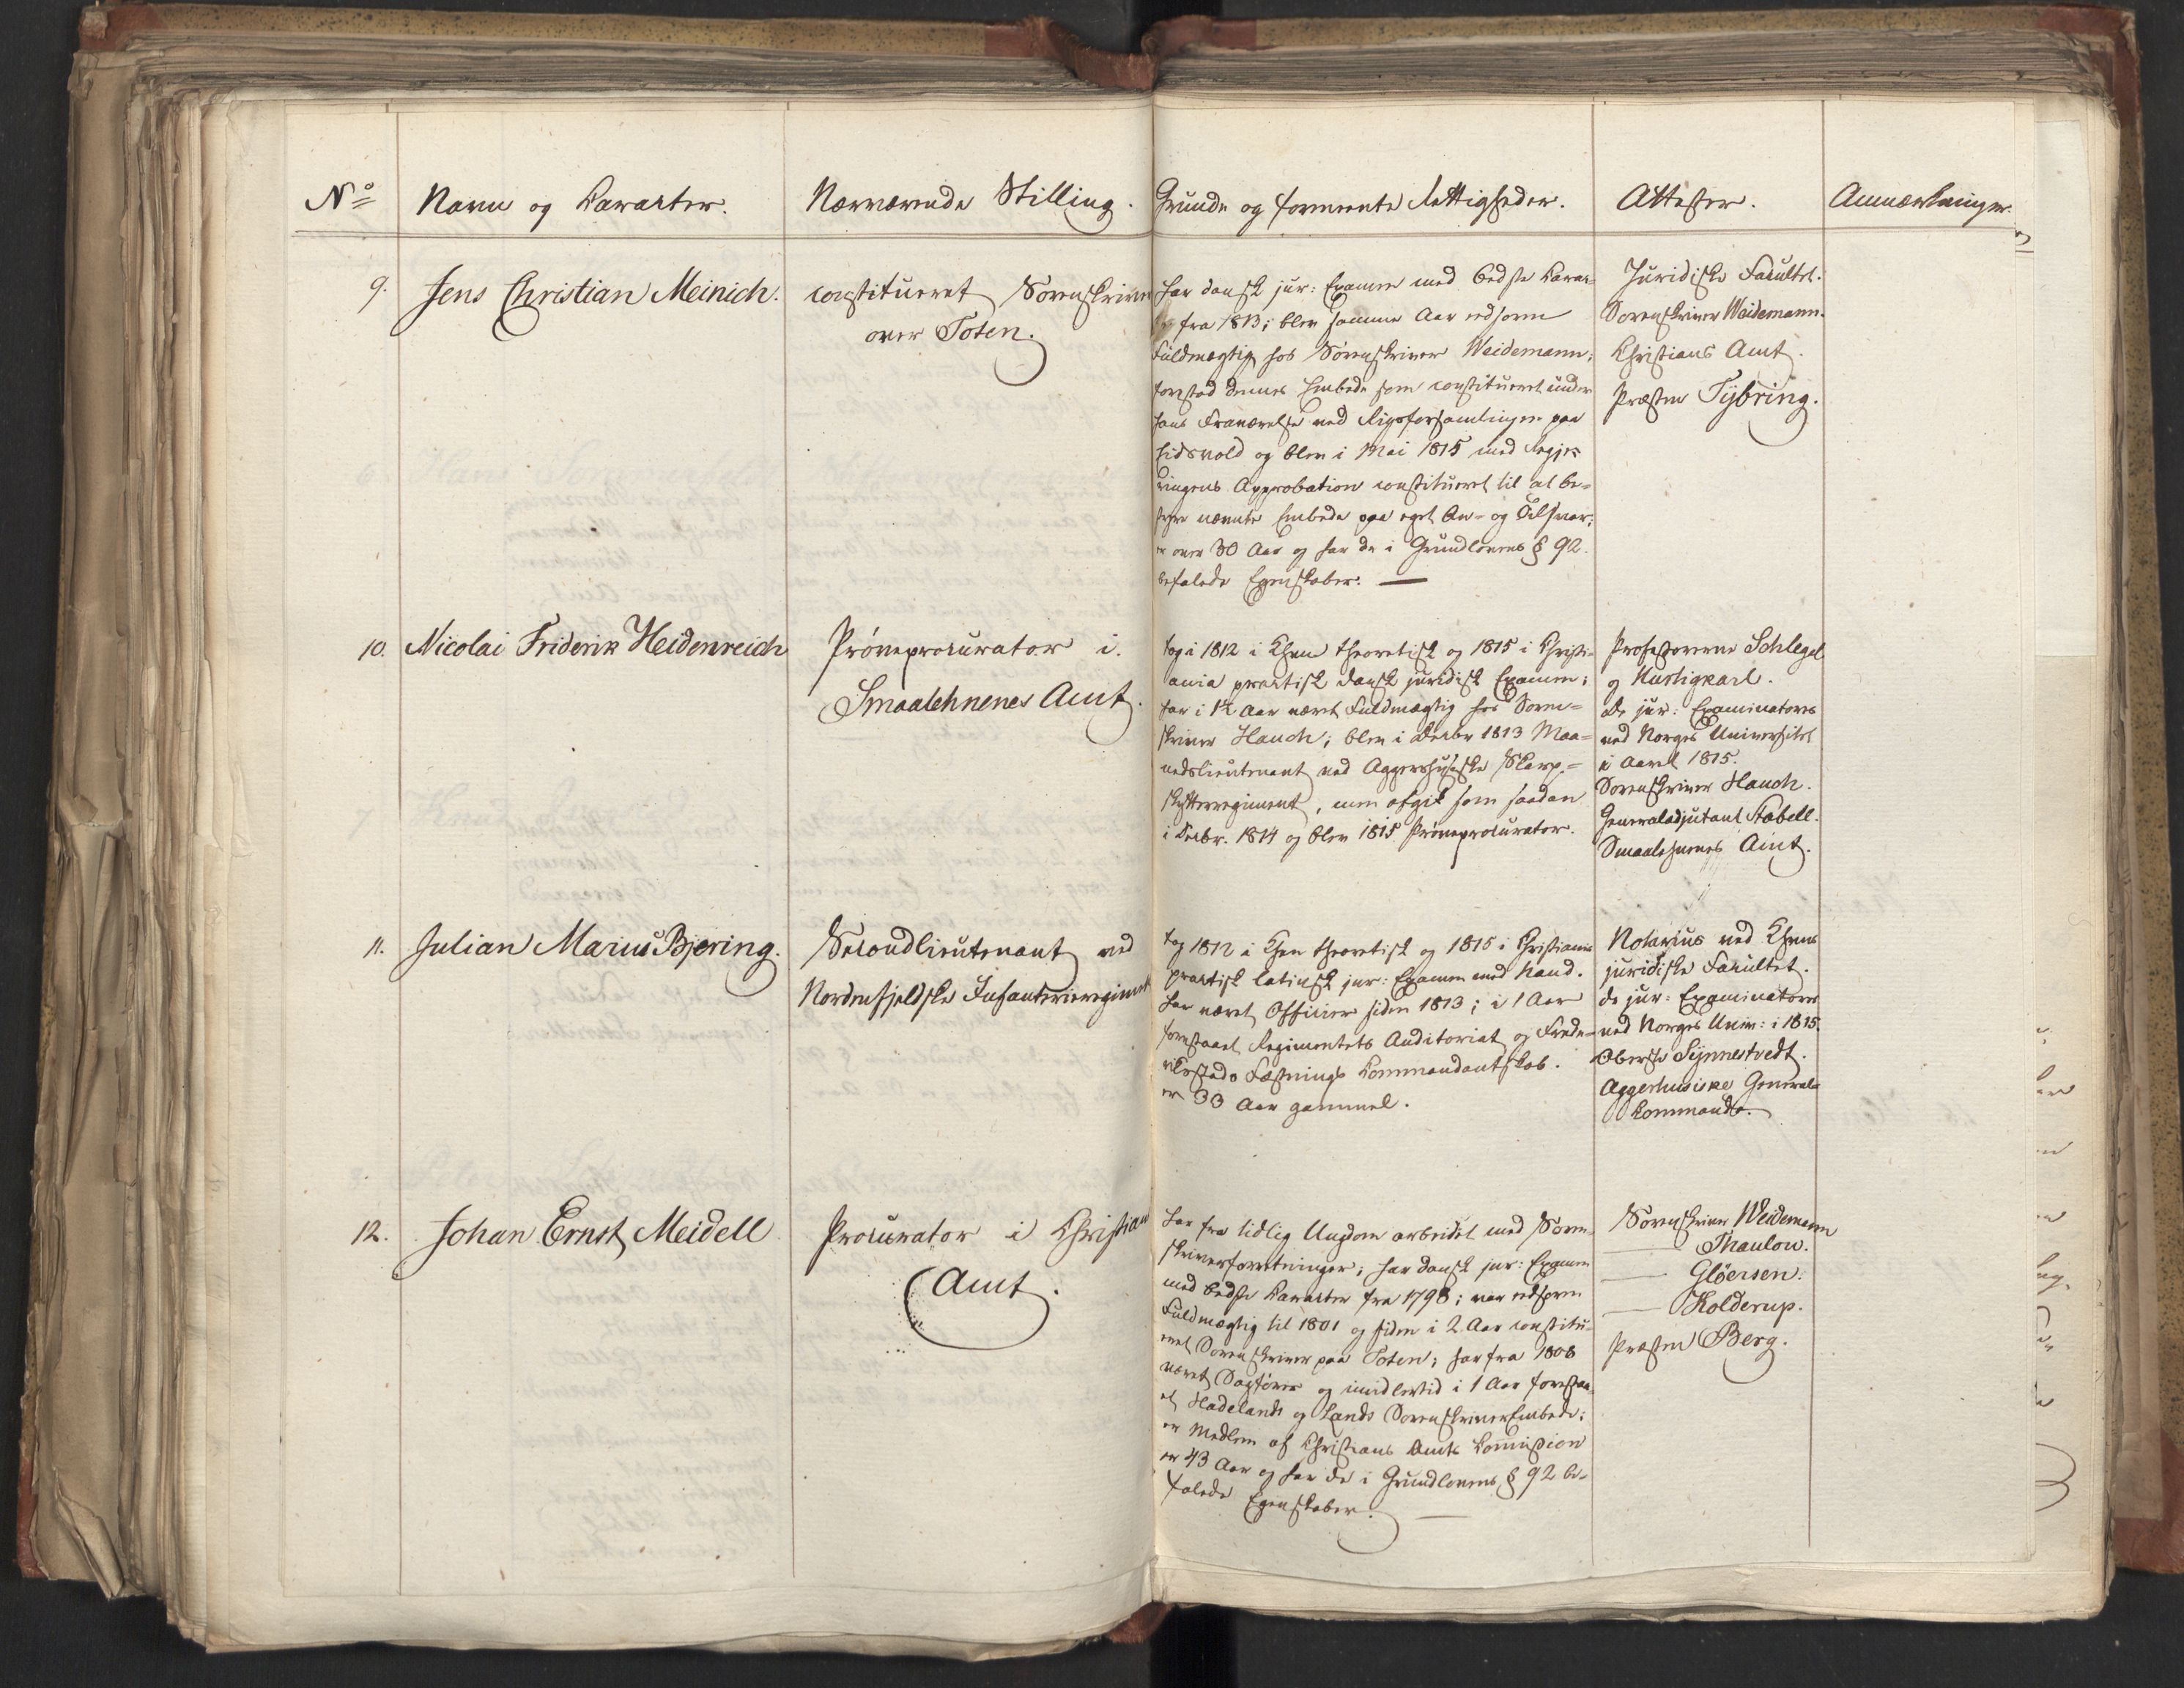 No Navn og Karakter. Nærværende Stilling. Grunde og formeente Rettigheder. Attester. Anmærkninger.
9. Jens Christian Meinich.
constitueret Sorenskriver
over Toten.
har dansk jur: Examen med bedste Karak-
fra 1813; blev samme Aar edsvoren
Fuldmægtig hos Sorenskriver Weidemann;
forestod dennes Embede som constitueret under
hans Fraværelse ved Rigsforsamlingen paa
Eidsvold og blev i Mai 1815 med Regje-
ringens Approbation constitueret til at be-
styre nævnte Embede paa eget An- og Tilsvar;
er over 30 Aar og har de i Grundlovens § 92.
befalede Egenskaber. —
Juridiske Facultet.
Sorenskriver Weidemann.
Christians Amt.
Præsten Tybring.
10. Nicolai Friderik Heidenreich
Prøveprocurator i
Smaalehnenes Amt.
tog i 1812 i Khvn theoretisk og 1815 i Christi-
ania practisk dansk juridisk Examen;
har i 1½ Aar været Fuldmægtig hos Soren-
skriver Hauch; blev i Decbr 1813 Maa-
nedslieutenant ved Aggershusiske Skarp-
skytterregiment, men afgik som saadan
i Decbr. 1814 og blev 1815 Prøveprocurator.
Professorerne Schlegel
og Hurtigkarl.
de jur: Examinatores
ved Norges Universitet
i Aaret 1815.
Sorenskriver Hauch.
Generaladjutant Stabell.
Smaalehnenes Amt.
11. Julian Marius Bjering.
Secondlieutenant ved
Nordenfjeldske Infanterieregiment
tog 1812 i Khvn theoretisk og 1815 i Christiania
practisk latinsk jur: Examen med Haud.
har været Officier siden 1813; i 1 Aar
forestaaet Regimentets Auditoriat og Frede-
rikstads Fæstnings Commandantskab.
er 33 Aar gammel.
Notarius ved Khvns
juridiske Facultet.
de jur: Examinatores
ved Norges Univ: i 1815.
Oberste Synnestvedt.
Aggerhusiske General-
Commando.
12. Johan Ernst Meidell
Procurator i Christians
Amt.
har fra tidlig Ungdom arbeidet med Soren-
skriverforretninger; har dansk jur: Examen
med bedste Karakter fra 1798; var edsvoren
Fuldmægtig til 1801 og siden i 2 Aar constitu-
eret Sorenskriver paa Toten; har fra 1808
været Sagfører og imidlertid i 1 Aar forestaa-
et Hadelands og Lands Sorenskriver Embede;
er Medlem af Christians Amts Commission
er 43 Aar og har de i Grundlovens § 92 be-
falede Egenskaber. —
Sorenskriver Weidemann
— Thaulow.
— Gløersen.
— Kolderup.
Præsten Berg.